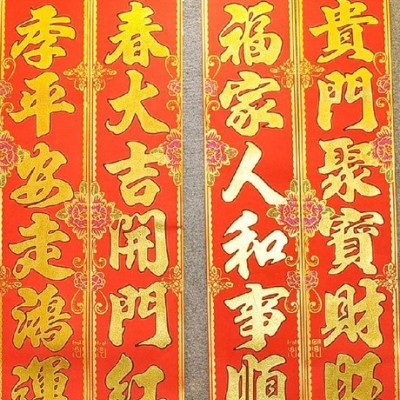 貴門聚寶財旺
福家人和事順
春大吉開門紅
季平安走鴻運